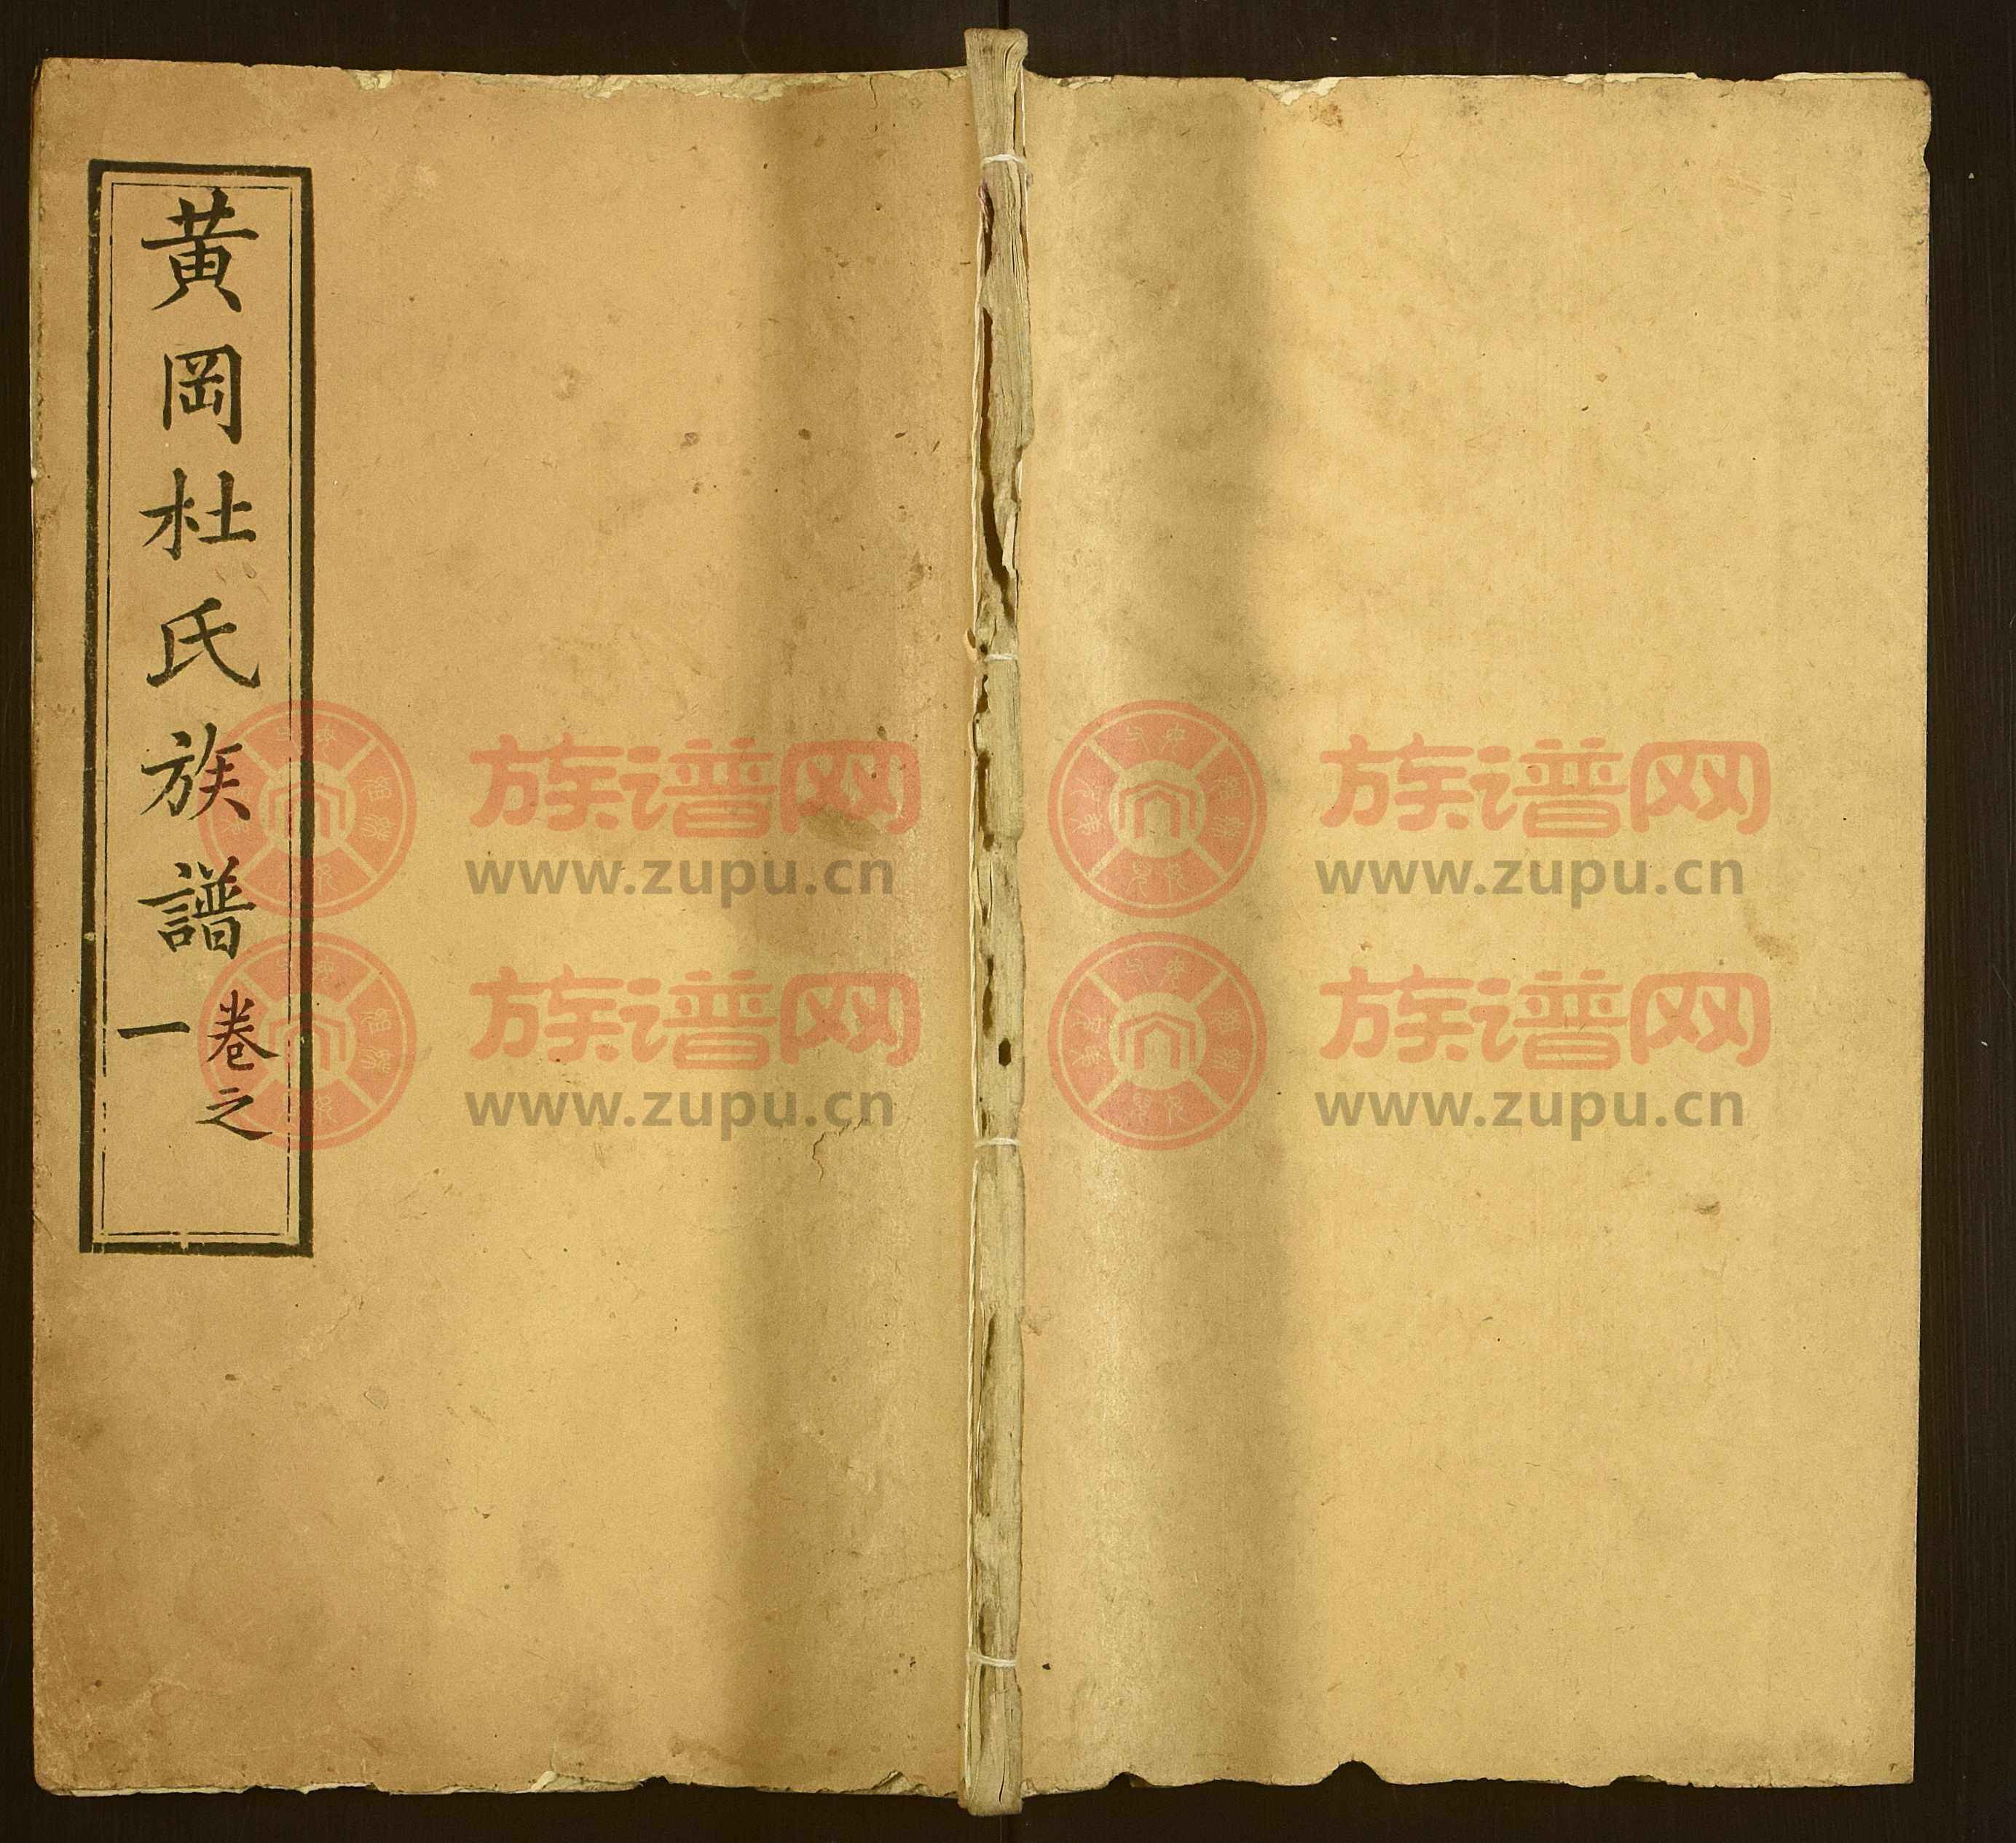 黄岡杜氏族譜
卷之
一
族谱网
www.zupu.cn
族谱网
www.zupu.cn
族谱网
www.zupu.cn
族谱网
www.zupu.cn